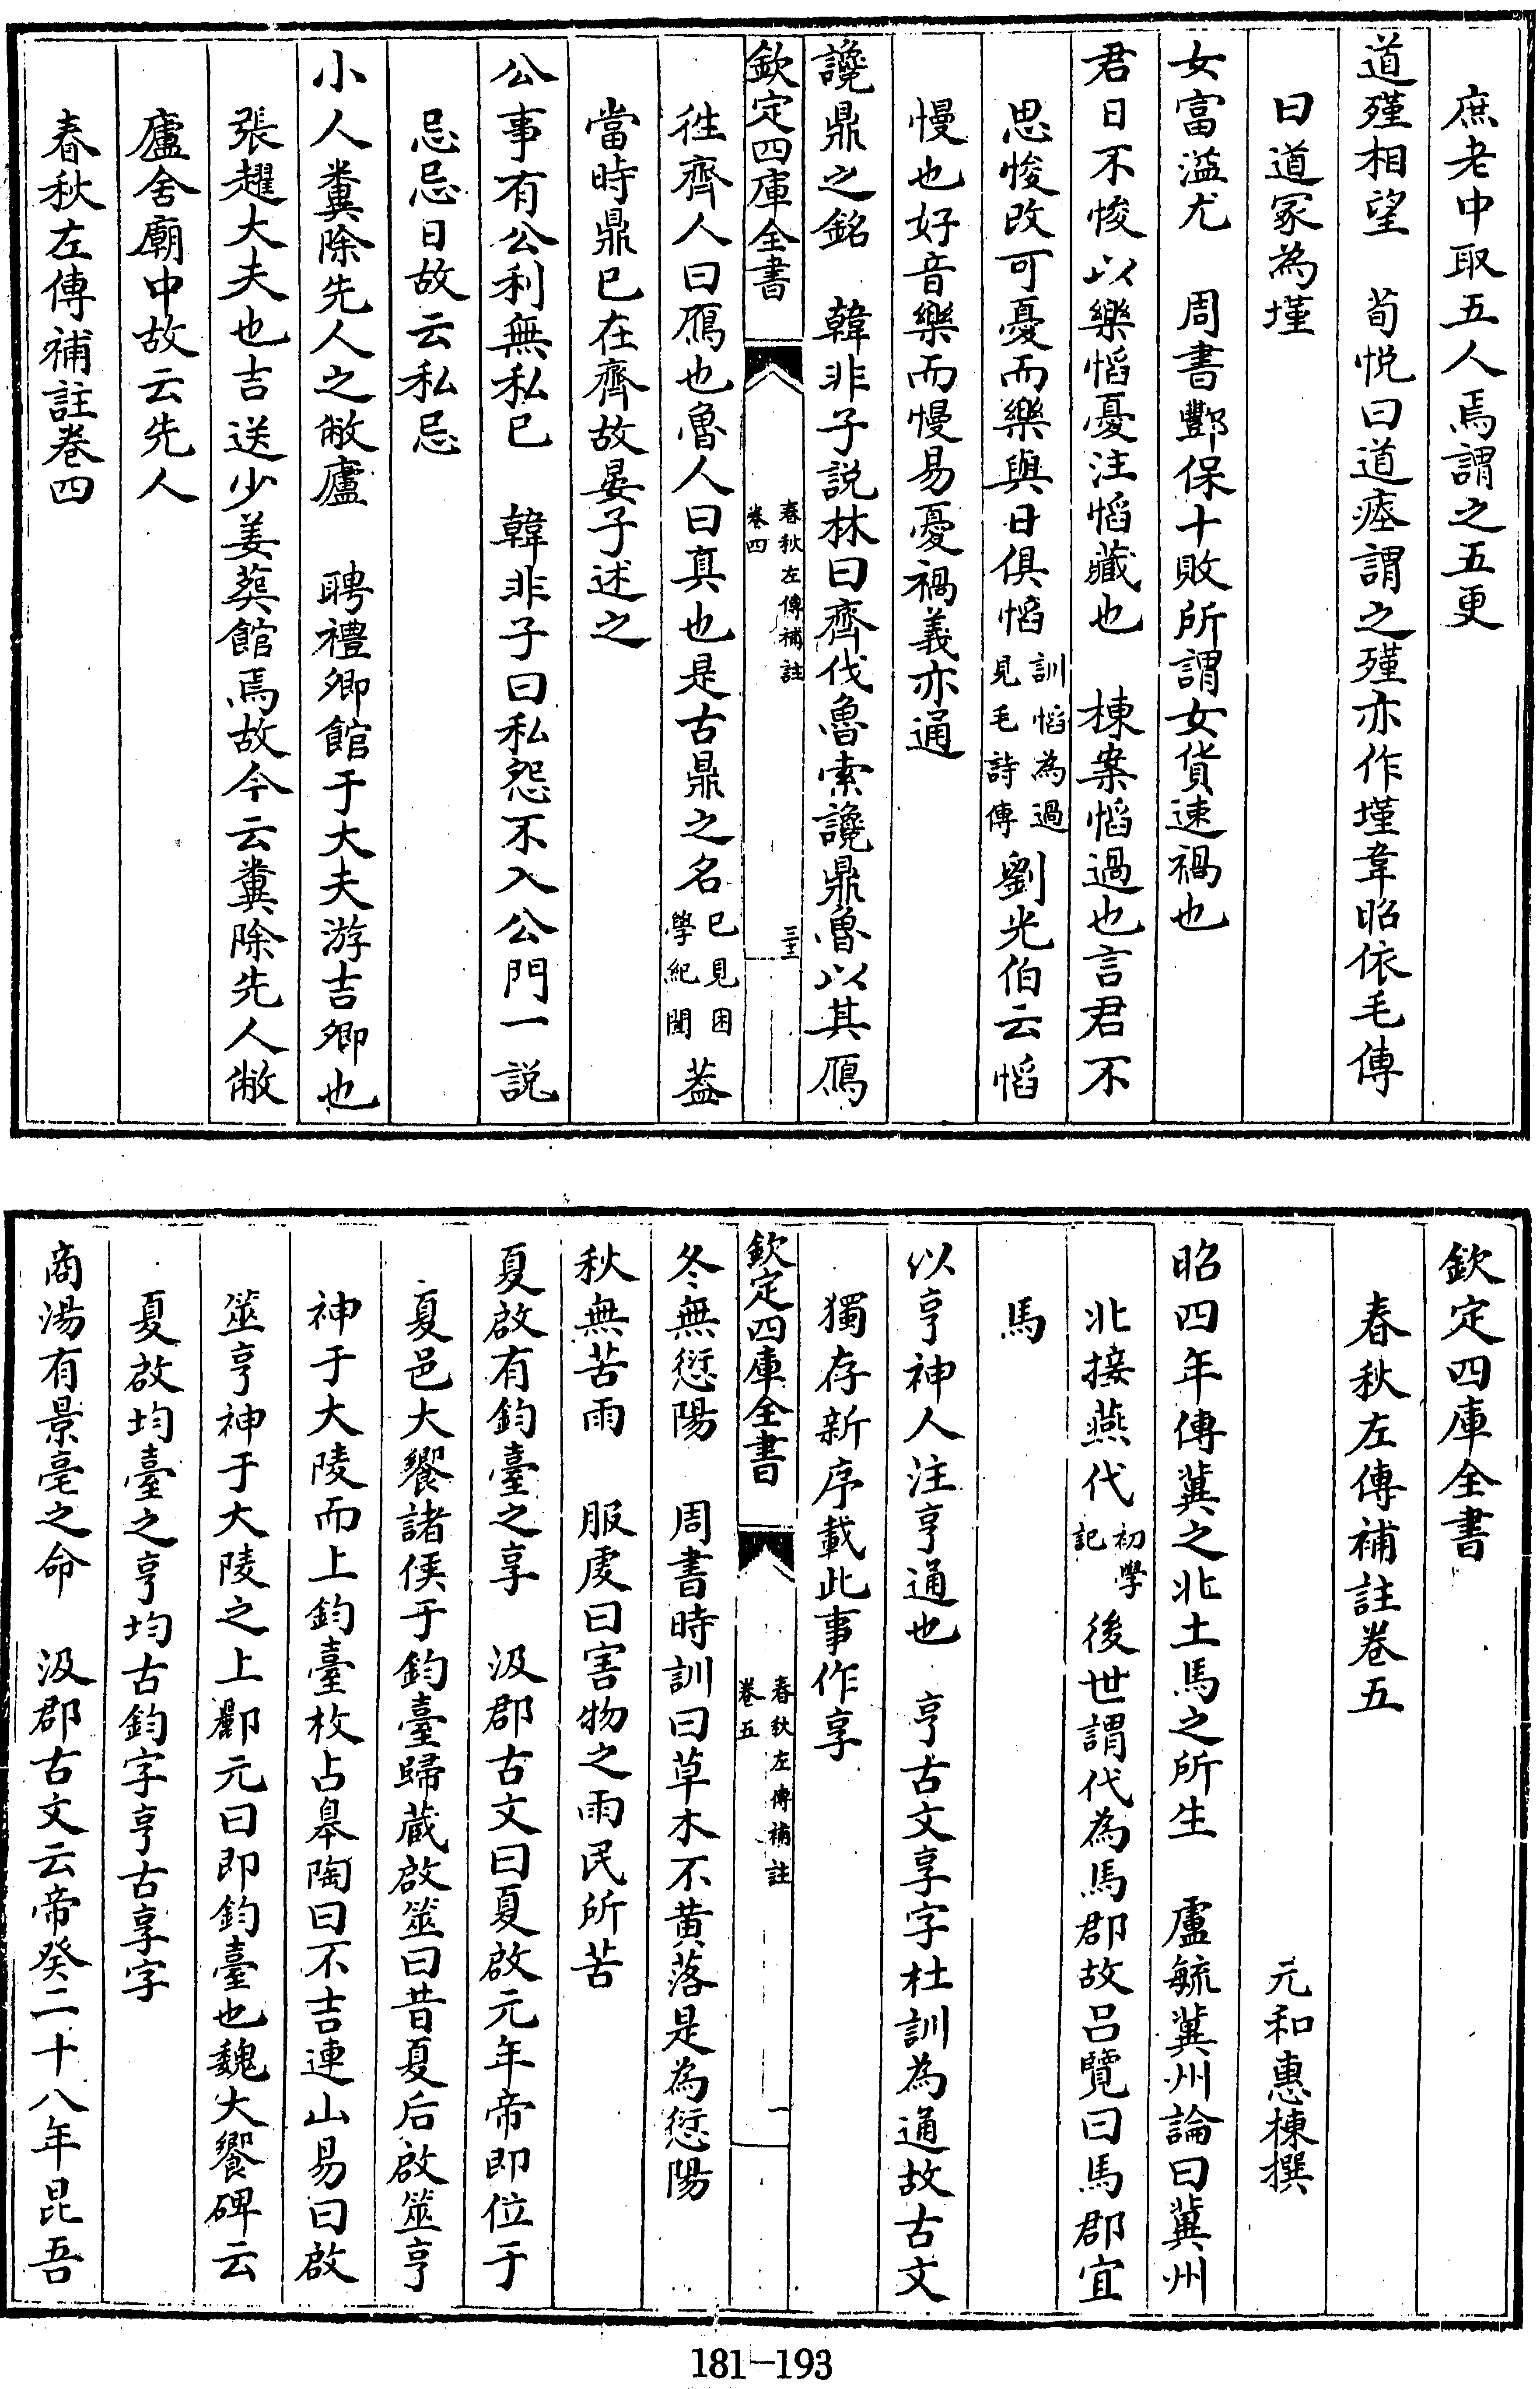 庶老中取五人焉謂之五更
道殣相望　荀悅曰道瘞謂之殣亦作墐韋昭依毛傳
曰道冢為墐
女富溢尤　周書酆保十敗所謂女貨速禍也
君日不悛以樂慆憂注慆藏也　棟案慆過也言君不
思悛改可憂而樂與日俱慆訓慆為過見毛詩傳劉光伯云慆
慢也好音樂而慢易憂禍義亦通
讒鼎之銘　韓非子說林曰齊伐魯索讒鼎魯以其鴈
欽定四庫全書
春秋左傳補註
卷四
三十二
徃齊人曰鴈也魯人曰真也是古鼎之名已見困學紀聞葢
當時鼎已在齊故晏子述之
公事有公利無私已　韓非子曰私怨不入公門一說
忌忌日故云私忌
小人糞除先人之敝廬　聘禮卿館于大夫游吉卿也
張趯大夫也吉送少姜葬館焉故今云糞除先人敝
廬舍廟中故云先人
春秋左傳補註卷四
欽定四庫全書
春秋左傳補註卷五
元和惠棟撰
昭四年傳冀之北土馬之所生　盧毓冀州論曰冀州
北接燕代初學記後世謂代為馬郡故呂覽曰馬郡宜
馬
以亨神人注亨通也　亨古文享字杜訓為通故古文
獨存新序載此事作享
欽定四庫全書
春秋左傳補註
卷五
一
冬無愆陽　周書時訓曰草木不黃落是為愆陽
秋無苦雨　服虔曰害物之雨民所苦
夏啟有鈞臺之享　汲郡古文曰夏啟元年帝即位于
夏邑大饗諸侯于鈞臺歸藏啟筮曰昔夏后啟筮亨
神于大陵而上鈞臺枚占皋陶曰不吉連山易曰啟
筮亨神于大陵之上酈元曰即鈞臺也魏大饗碑云
夏啟均臺之亨均古鈞字亨古享字
商湯有景亳之命　汲郡古文云帝癸二十八年昆吾
181-193